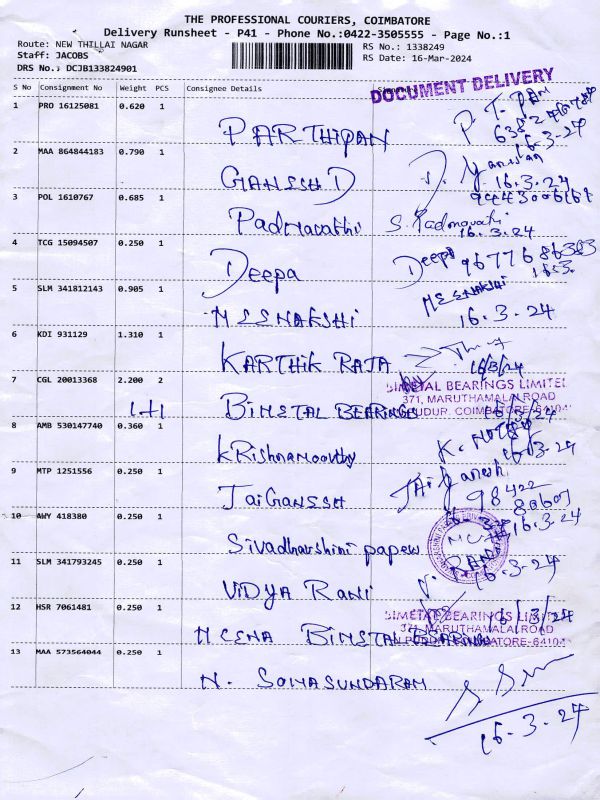 THE PROFESSIONAL COURIERS, COIMBATORE
Delivery Runsheet - P41 - Phone No.:0422-3505555 - Page No.:1
Route: NEW THILLAI NAGAR RS No.: 1338249
Staff: JACOBS RS Date: 16-Mar-2024
DRS No.: DCJB133824901
S No Consignment No Weight PCS Consignee Details
DOCUMENT DELIVERY
1 PRO 16125081 0.620 1 PARTHIPAN
16-3-24
2 MAA 864844183 0.790 1 GANESH D
16.3.24
3 POL 1610767 0.685 1 Padmavathi S. Padmavathi
16.3.24
4 TCG 15094507 0.250 1 Deepa Deepa
5 SLM 341812143 0.905 1 MEENAKSHI MEENAKSHI
16.3.24
6 KDI 931129 1.310 1 KARTHIK RAJA
16/3/24
7 CGL 20013368 2.200 2 1+1 BIMETAL BEARINGS
BIMETAL BEARINGS LIMITED
371, MARUTHAMALAI ROAD
16/3/24
8 AMB 530147740 0.360 1 KRishnamoorthy
16-3-24
9 MTP 1251556 0.250 1 JaiGANESH Jai Ganesh
10 AWY 418380 0.250 1 Sivadharshini papers
16-3-24
11 SLM 341793245 0.250 1 VIDYA RANI
16-3-24
12 HSR 7061481 0.250 1 MEENA BIMETAL BEARINGS
BIMETAL BEARINGS LIMITED
371, MARUTHAMALAI ROAD
16/3/24
13 MAA 573564044 0.250 1 N. SOMASUNDARAM
16-3-24